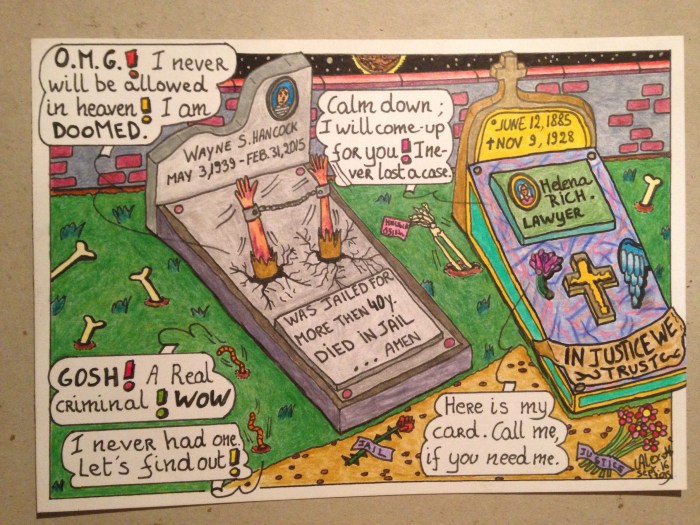 O.M.G.! I never
will be allowed
in heaven! I am
DOOMED.
Calm down;
I will come-up
for you! I ne-
ver lost a case.
WAYNE S. HANCOCK
MAY 3, 1939 - FEB. 31, 2015
WAS JAILED FOR
MORE THEN 40 y.
DIED IN JAIL
... AMEN
JUNE 12, 1885
✝NOV 9, 1928
Helena
RICH.
LAWYER
IN JUSTICE WE
TRUST
GOSH! A Real
criminal! WOW
I never had one.
Let's find out!
Here is my
card. Call me,
if you need me.
JAIL
JUSTICE